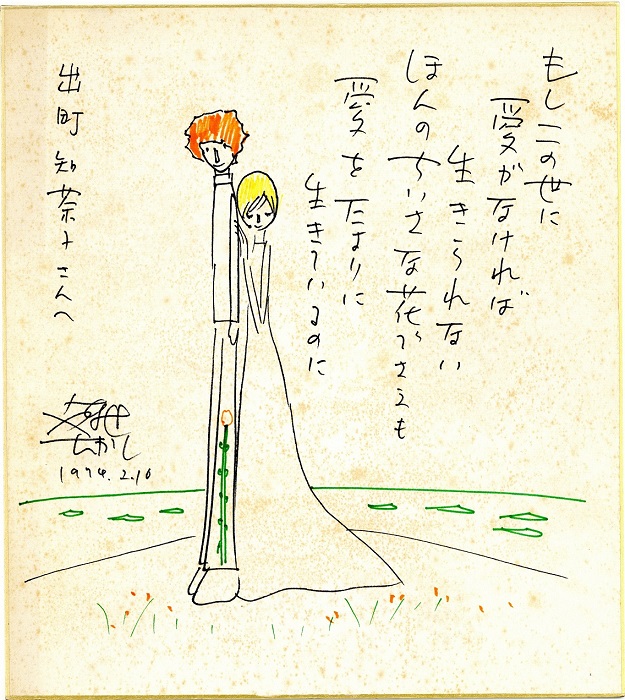 もしこの世に
愛がなければ
生きられない
ほんのちいさな花でさえも
愛をたよりに
生きているのに
出町 知奈子さんへ
1974.2.10